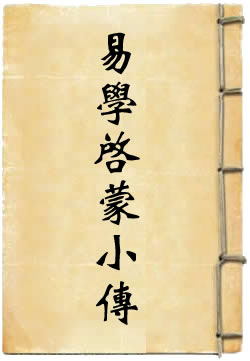 易學啓蒙小傳